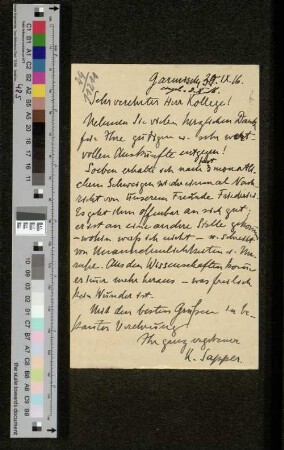 Garmisch, 30. IX. 16.
Sehr verehrter Herr Kollege!
Nehmen Sie vielen herzlichen Dank
für Ihre gütigen u. sehr wert-
vollen Auskünfte entgegen!
Soeben erhalte ich nach 3 monatli-
chem Schweigen wieder einmal Nach-
richt von unserem Freunde Friederici.
Es geht ihm offenbar an sich gut;
er ist an eine andere Stelle gekommen
– wohin weiß ich nicht – u. schreibt
von Unannehmlichkeiten u. Un-
ruhe. Aus den Wissenschaften komme
er nun mehr heraus – was freilich
kein Wunder ist.
Mit den besten Grüßen in be-
kannter Verehrung
Ihr ganz ergebener
K. Sapper.